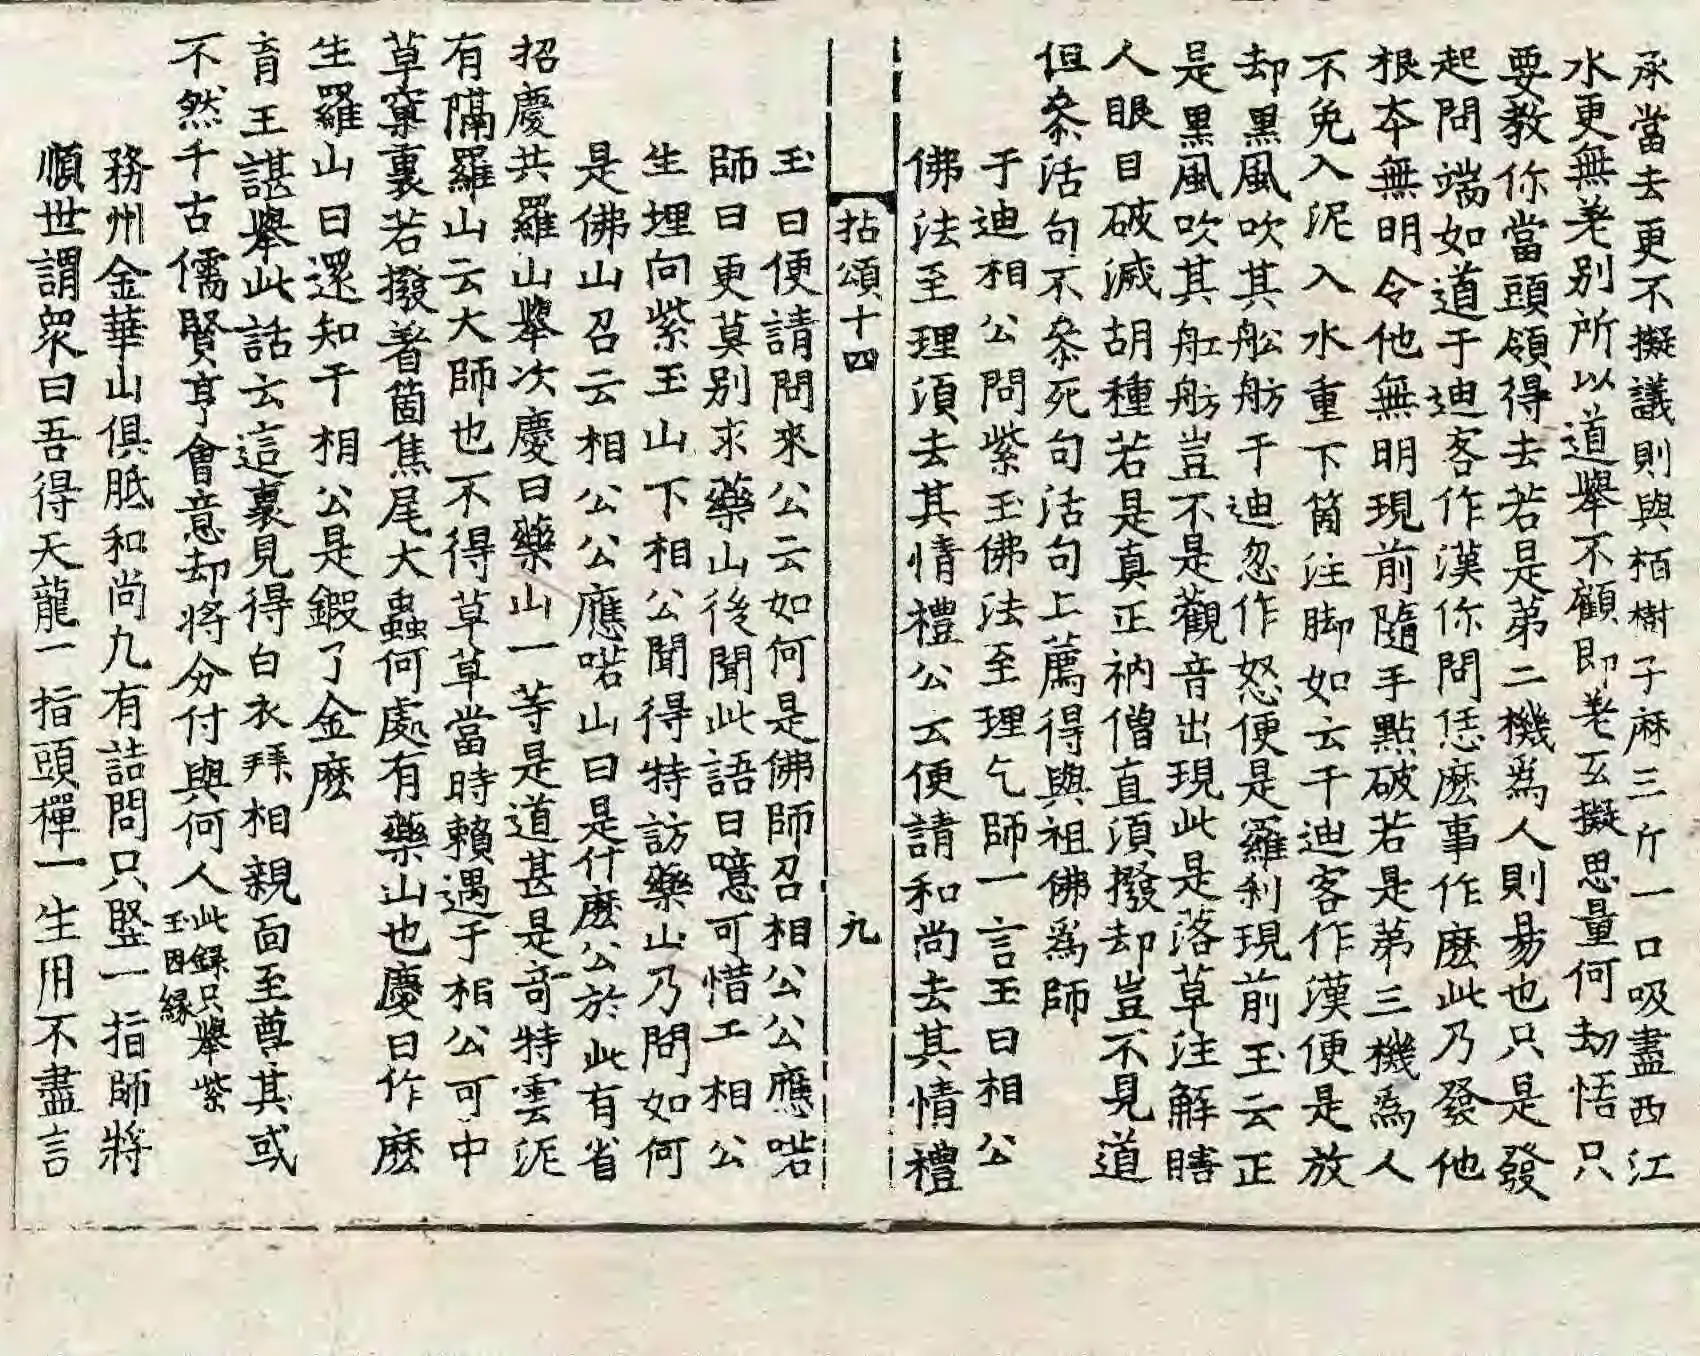 承當去更不擬議則與栢樹子麻三斤一口吸盡西江
水更無老別所以道舉不顧即老玄擬思量何劫悟只
要教你當頭領得去若是第二機爲人則易也只是發
起問端如道于迪客作漢你問恁麽事作麽此乃發他
根本無明令他無明現前隨手點破若是第三機爲人
不免入泥入水重下箇注脚如云于迪客作漢便是放
却黑風吹其舩舫于迪忽作怒便是羅刹現前玉云正
是黑風吹其舡舫豈不是觀音出現此是落草注解瞎
人眼目破滅胡種若是真正衲僧直須撥却豈不見道
但叅活句不叅死句活句上薦得與祖佛爲師
于迪相公問紫玉佛法至理乞師一言玉曰相公
佛法至理須去其情禮公云便請和尚去其情禮
拈頌十四 九
玉曰便請問來公云如何是佛師召相公公應喏
師曰更莫別求藥山後聞此語曰噫可惜工相公
生埋向紫玉山下相公聞得特訪藥山乃問如何
是佛山召云相公公應喏山曰是什麽公於此有省
招慶共羅山舉次慶曰藥山一等是道甚是竒特雲泥
有隔羅山云大師也不得草草當時賴遇于相公可中
草窠裏若撥著箇焦尾大蟲何處有藥山也慶曰作麽
生羅山曰還知于相公是鍛了金麽
育王諶舉此話云這裏見得白衣拜相親面至尊其或
不然千古儒賢亨會意却將分付與何人此録只舉紫玉因縁
務州金華山俱胝和尚九有詰問只竪一指師將
順世謂衆曰吾得天龍一指頭禪一生用不盡言